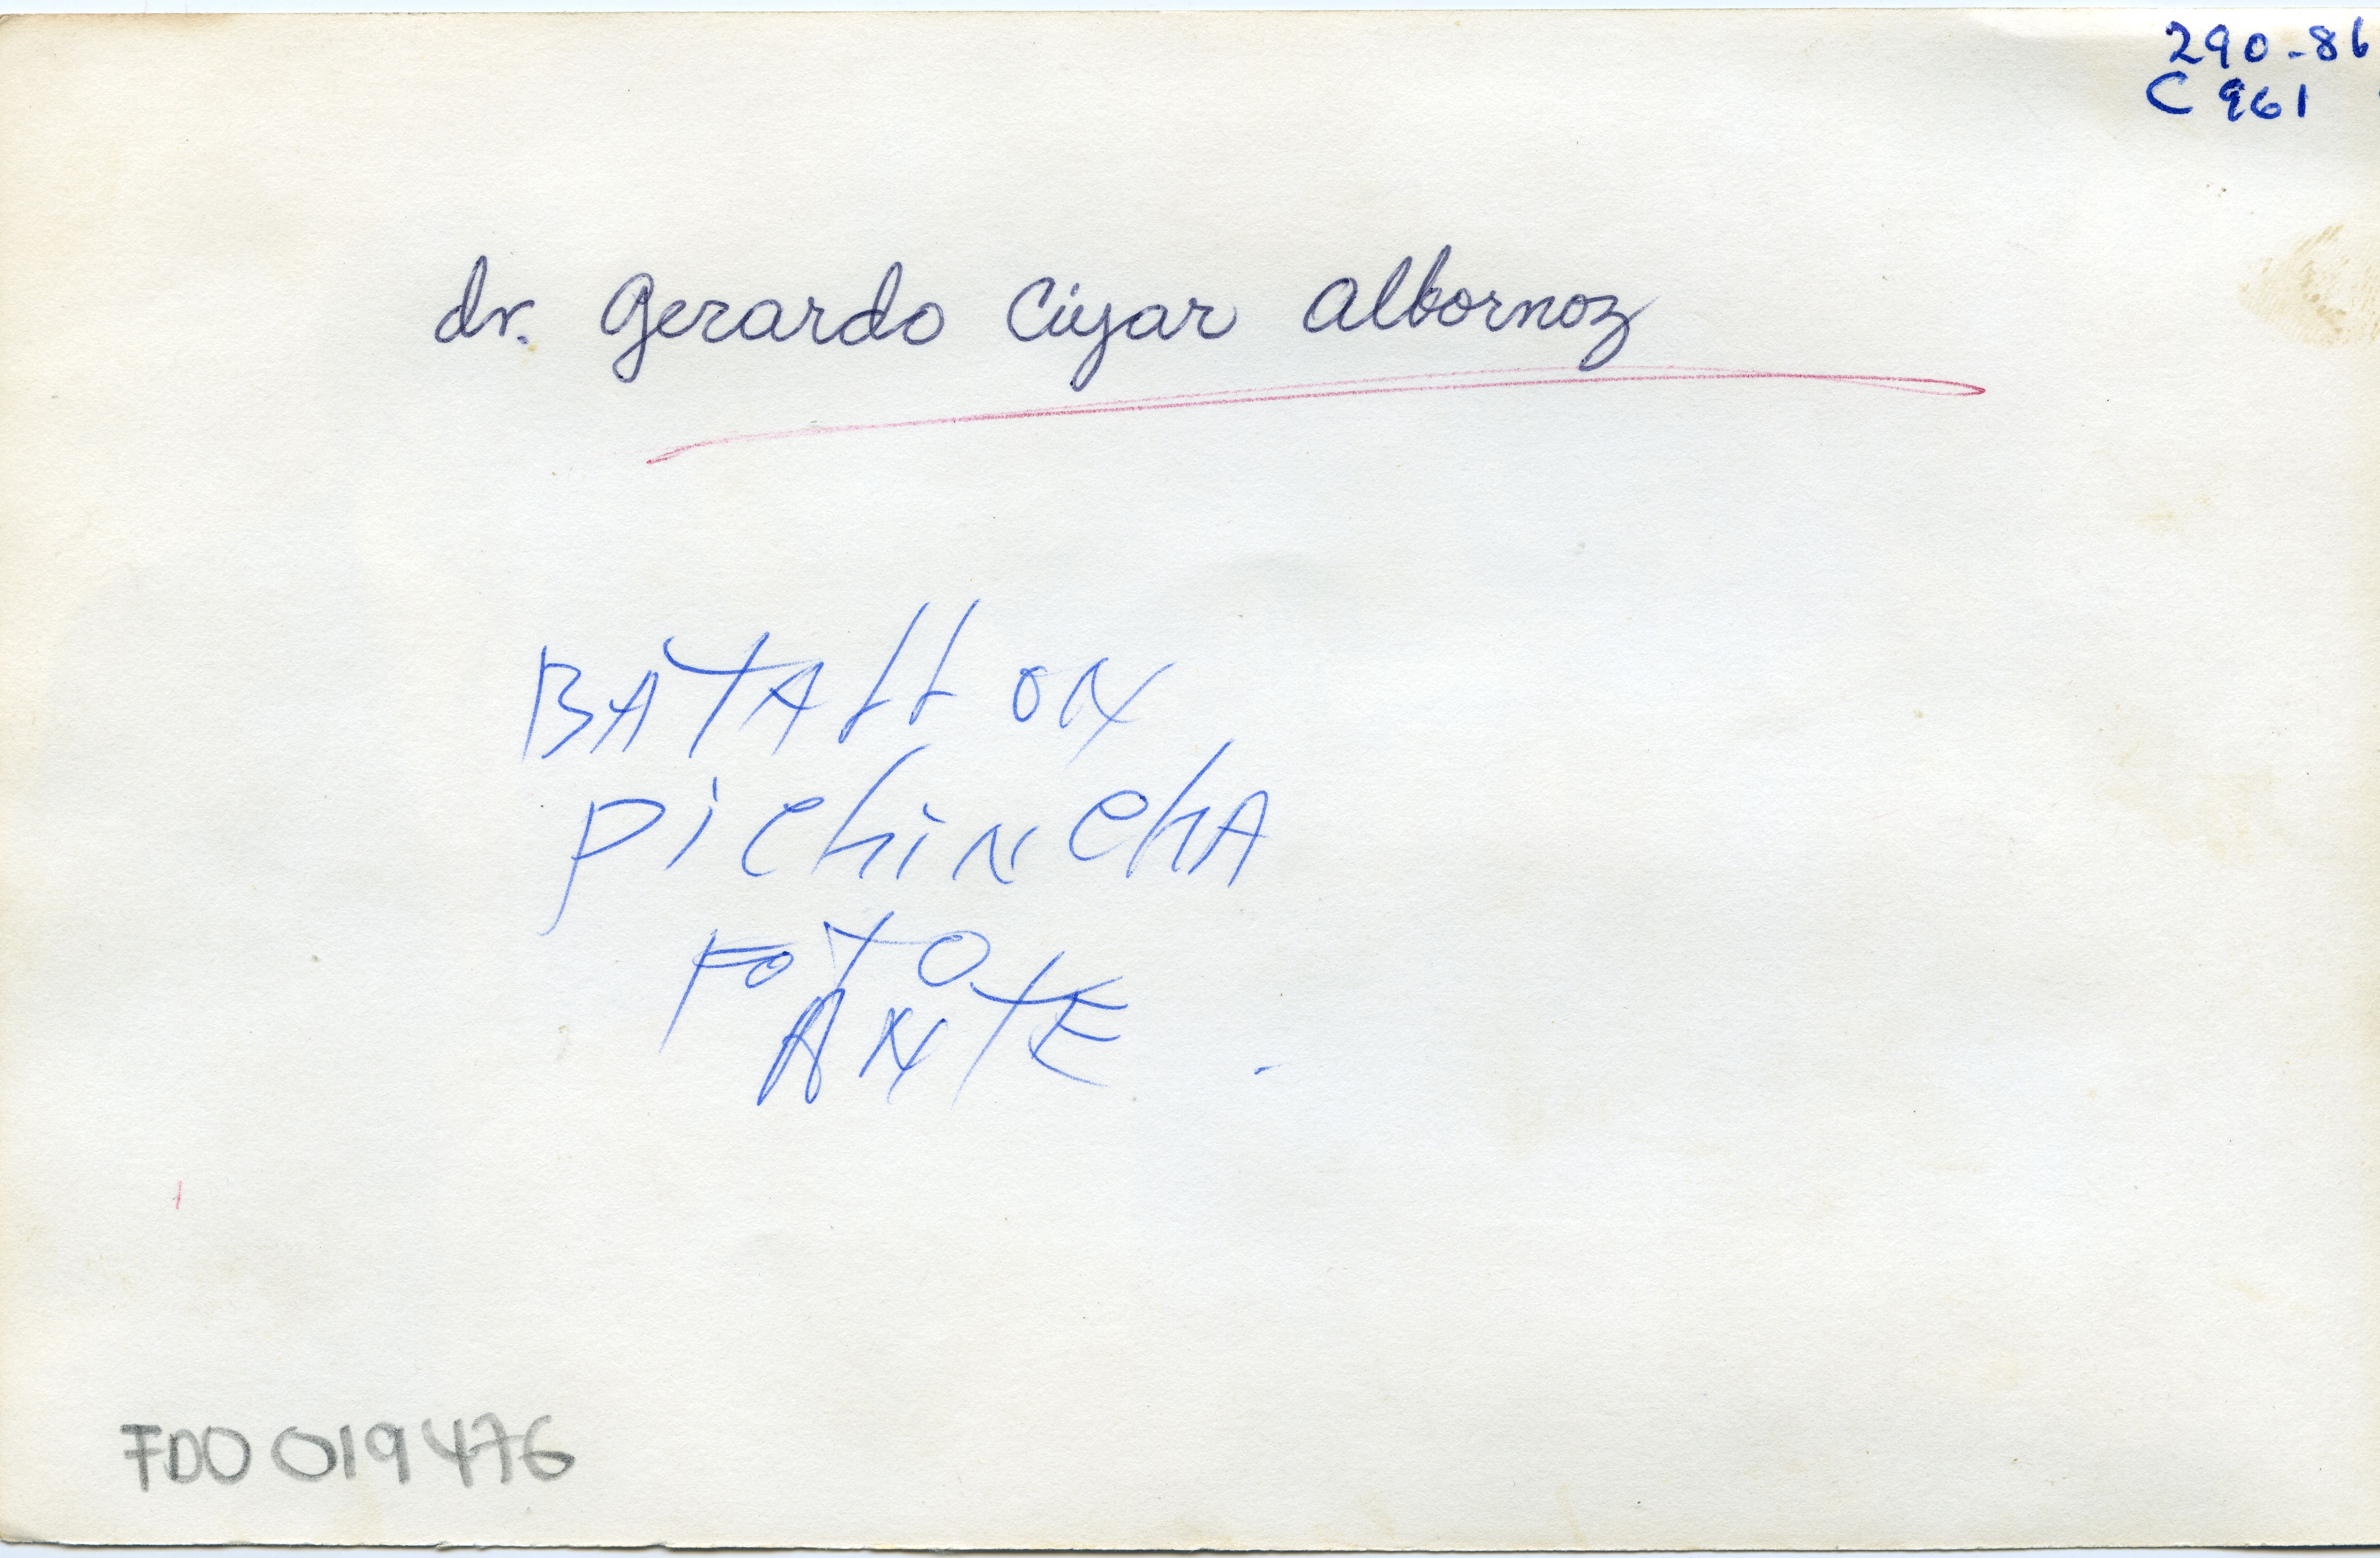 290-86
C 961
dr. Gerardo Ciyar Albornoz
BATALLON
PichiNchA
FOTO
ANTE.
FDO 019476